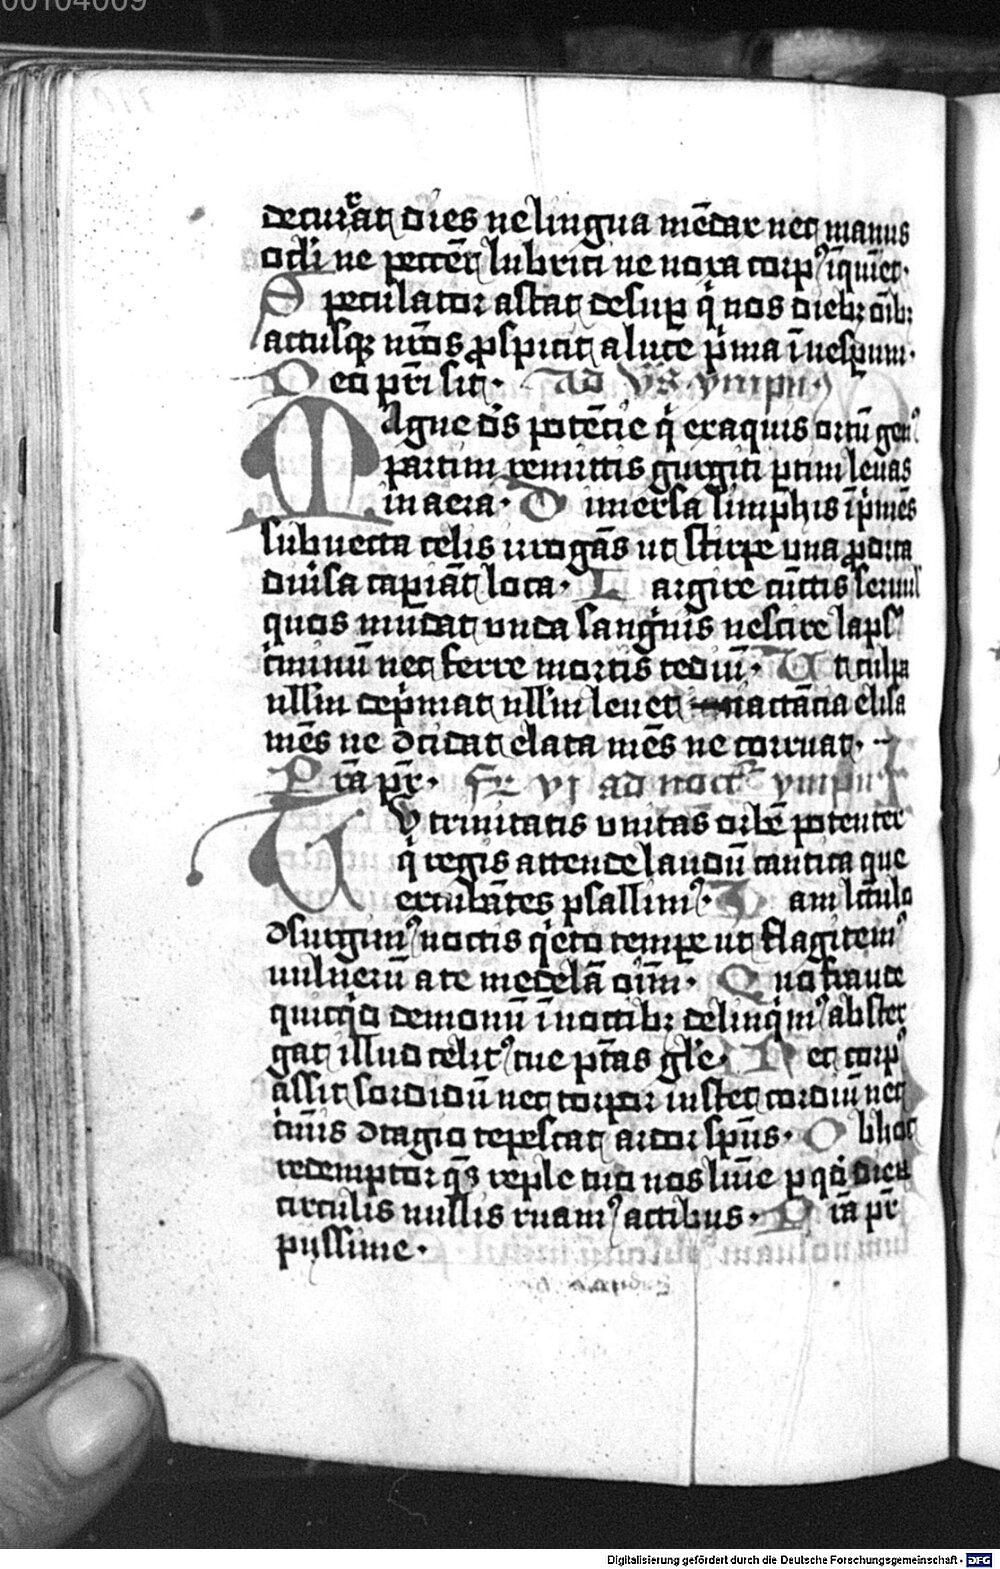 00104009
decurrat dies ne lingua mēdax nec manus
ocli ne peccēt lubrici ne noxa corpꝰ īquiet·
Speculator astat desup̱ qͥ nos dieb; oīb;
actusq; nr̄os ꝓspicit a luce pͥma ī uesperum·
Deo pr̄i sit· Ad vs̄ ympnꝰ
Magne ds̄ potēcie qͥ ex aquis ortū genꝰ
partim remittis gurgiti p̱tim leuas
in aera· Dimersa limphis īpͥmēs
subuecta celis irrogās ut stirpe una ꝓdita
diuͥsa capiāt loca· Largire cūctis seruul
quos mūdat unda sangͥnis nescire lapsꝰ
cͥminū nec ferre mortis tediū· Ut culpa
ullū depͥmat ullū leuet iactācia elisa
mēs ne ꝯcidat elata mēs ne corruat·
Pr̄a pr̄· Fr̄ vj ad noct̄ ympnꝰ
Tu trinitatis unitas orbē potenter
qͥ regis attende laudū cantica que
excubātes psallimꝰ· Nam lectulo
ꝯsurgimꝰ noctis qͥeto tempe ut flagitemꝰ
uulnerū a te medelā oīm· Quo fraude
quicqͥd demonū ī noctib; delinqͥmꝰ abster
gat illud celitꝰ tue pt̄as gl̄e· Ne corpꝰ
assit sordidū nec torpor instet cordiū nec
cͥmīs ꝯtagio tepescat ardor spūs· Ob hoc
redemptor qs̄ reple tuo nos lum̄e p̱ qd̄ dierū
circulis nullis ruamꝰ actibus· Pr̄a pr̄
pijssime·
Digitalisierung gefördert durch die Deutsche Forschungsgemeinschaft - DFG